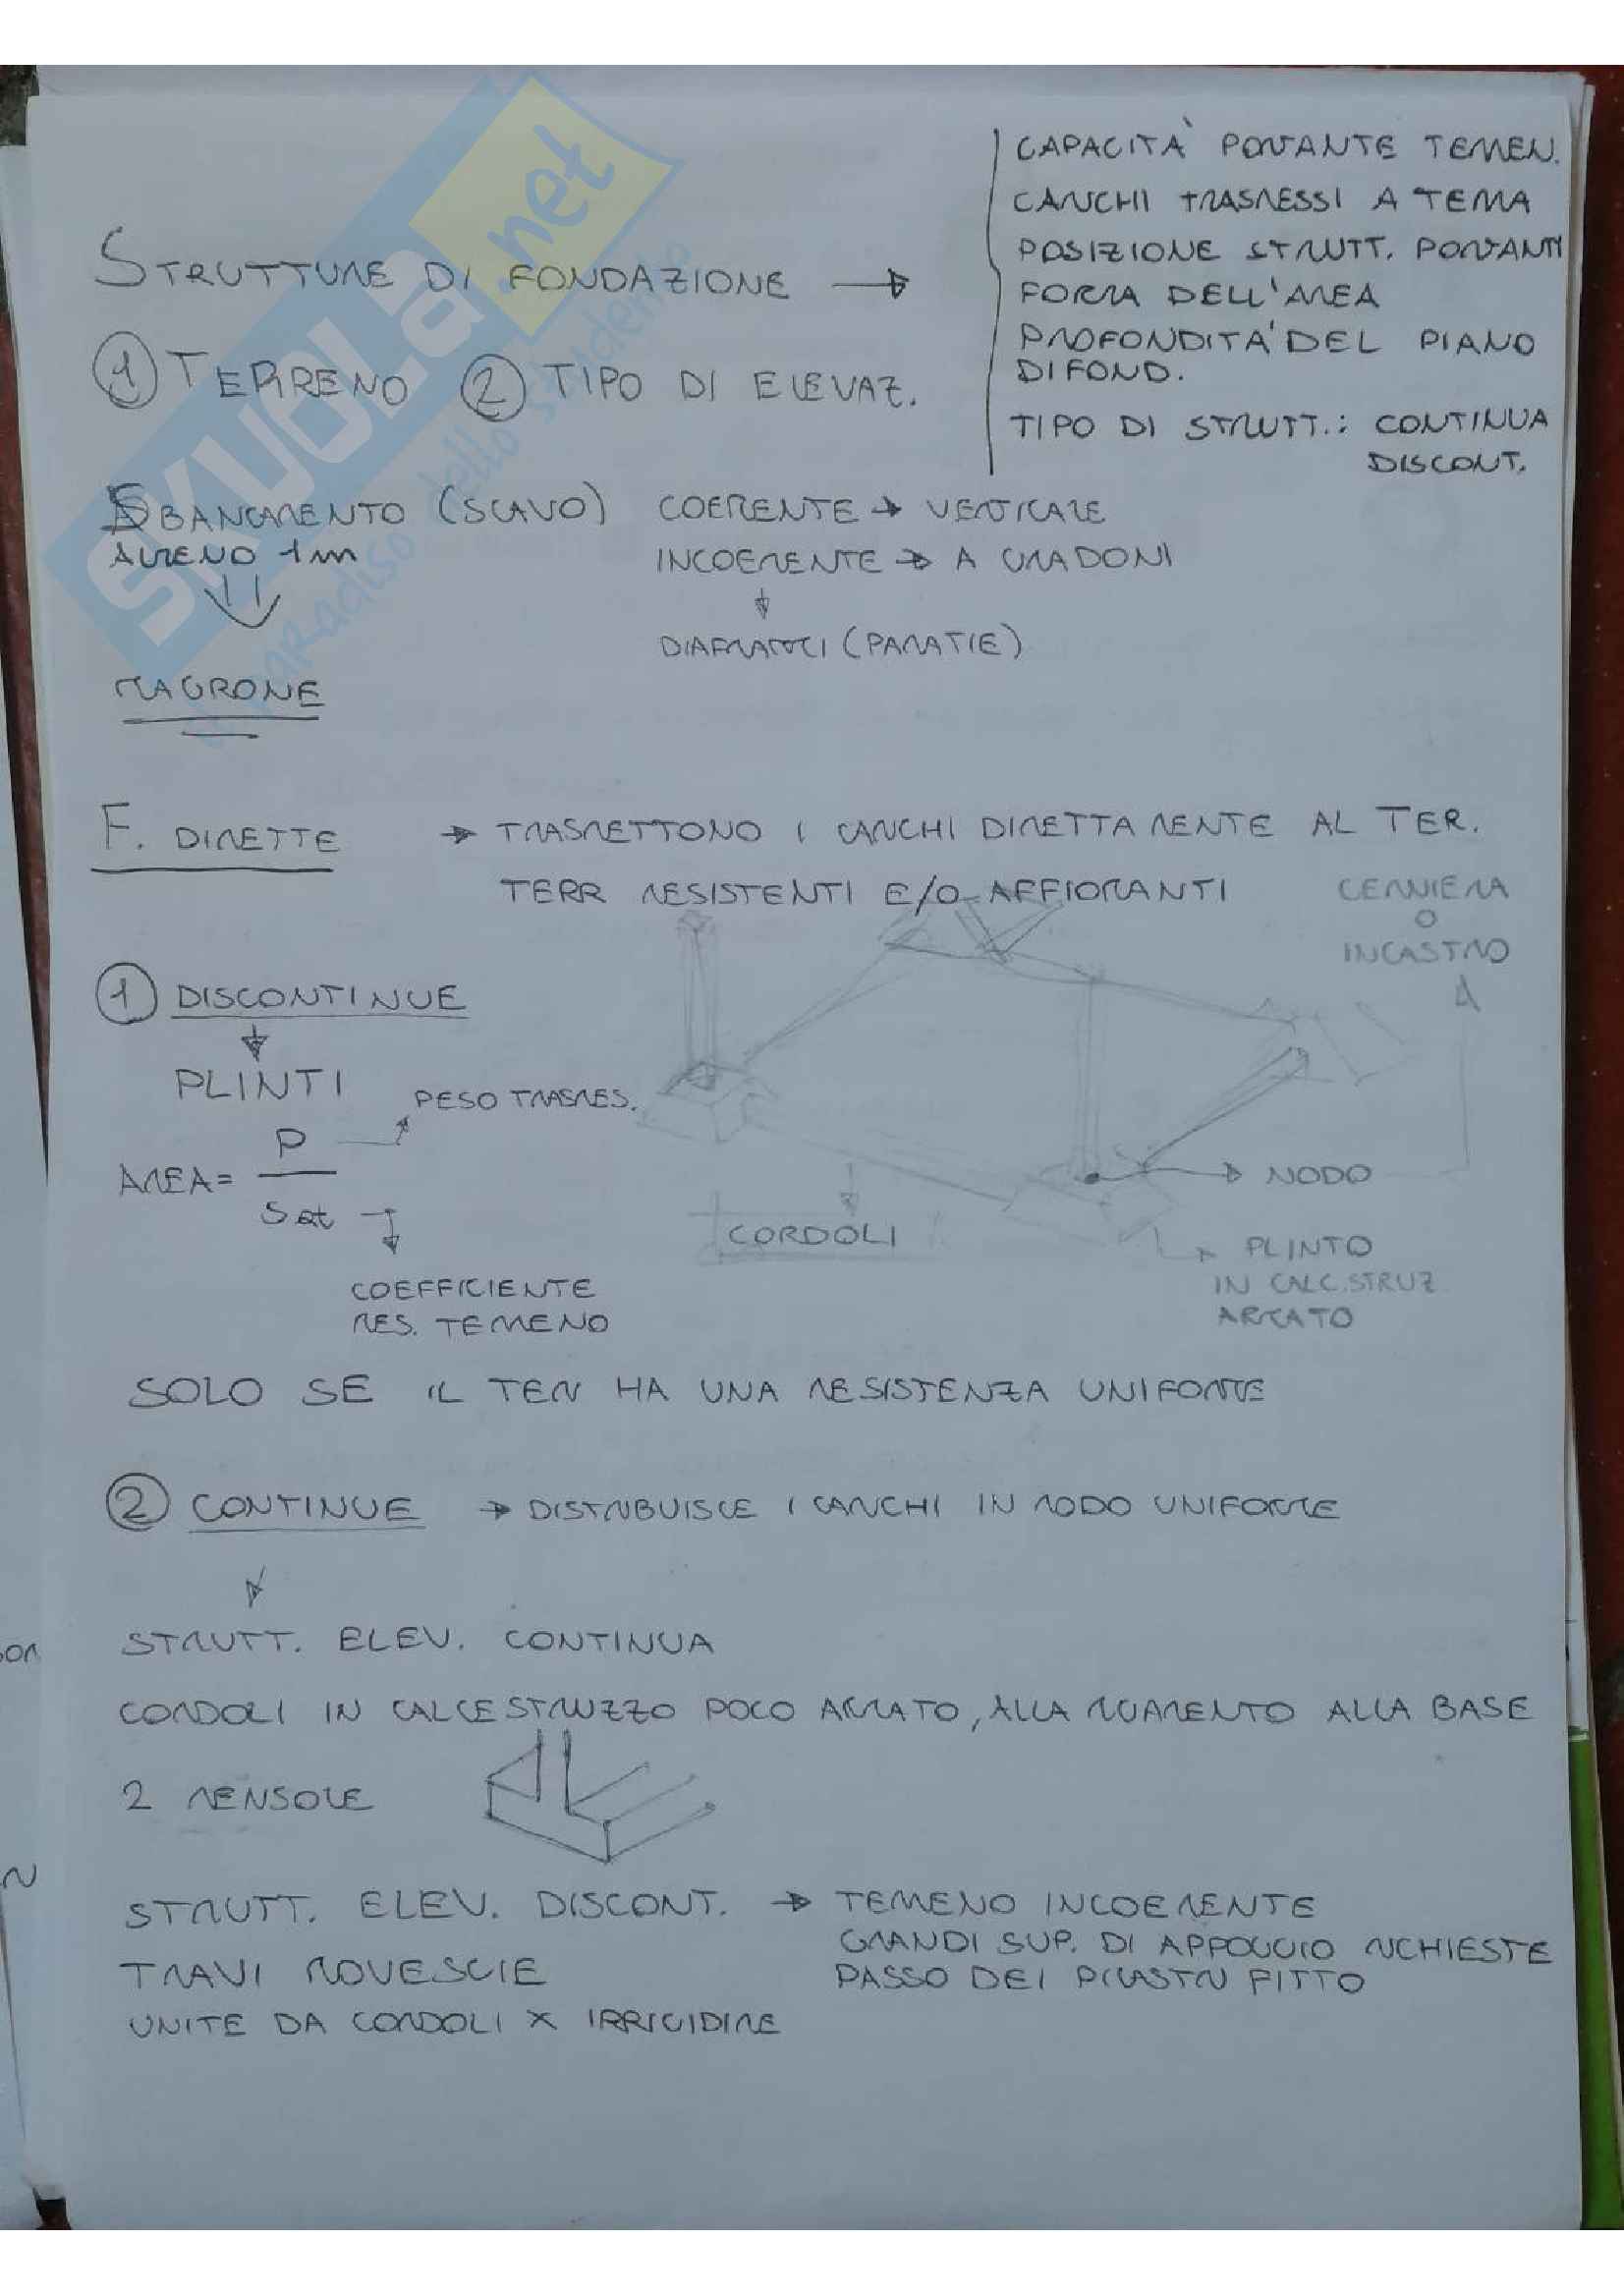 STRUTTURE DI FONDAZIONE →
CAPACITÀ PORTANTE TERREN.
CARICHI TRASMESSI A TERRA
POSIZIONE STRUTT. PORTANTI
FORMA DELL'AREA
PROFONDITA' DEL PIANO
DI FOND.
TIPO DI STRUTT.: CONTINUA
DISCONT.
① TERRENO ② TIPO DI ELEVAZ.
SBANCAMENTO (SCAVO)
ALMENO 1m
MAGRONE
COERENTE → VERTICALE
INCOERENTE → A GRADONI
DIAFRAMMI (PARATIE)
F. DIRETTE → TRASMETTONO I CARICHI DIRETTAMENTE AL TER.
TERR RESISTENTI E/O AFFIORANTI
CERNIERA
O
INCASTRO
① DISCONTINUE
PLINTI
PESO TRASMES.
AREA = P
COEFFICIENTE
RES. TERRENO
CORDOLI
NODO
PLINTO
IN CALC.STRUZ
ARMATO
SOLO SE IL TER HA UNA RESISTENZA UNIFORME
② CONTINUE → DISTRIBUISCE I CARICHI IN MODO UNIFORME
STRUTT. ELEV. CONTINUA
CORDOLI IN CALCESTRUZZO POCO ARMATO, ALLARGAMENTO ALLA BASE
2 MENSOLE
STRUTT. ELEV. DISCONT. → TERRENO INCOERENTE
GRANDI SUP. DI APPOGGIO RICHIESTE
PASSO DEI PILASTRI FITTO
TRAVI ROVESCIE
UNITE DA CORDOLI X IRRIGIDIRE
SKUOLA.net
il paradiso dello studente